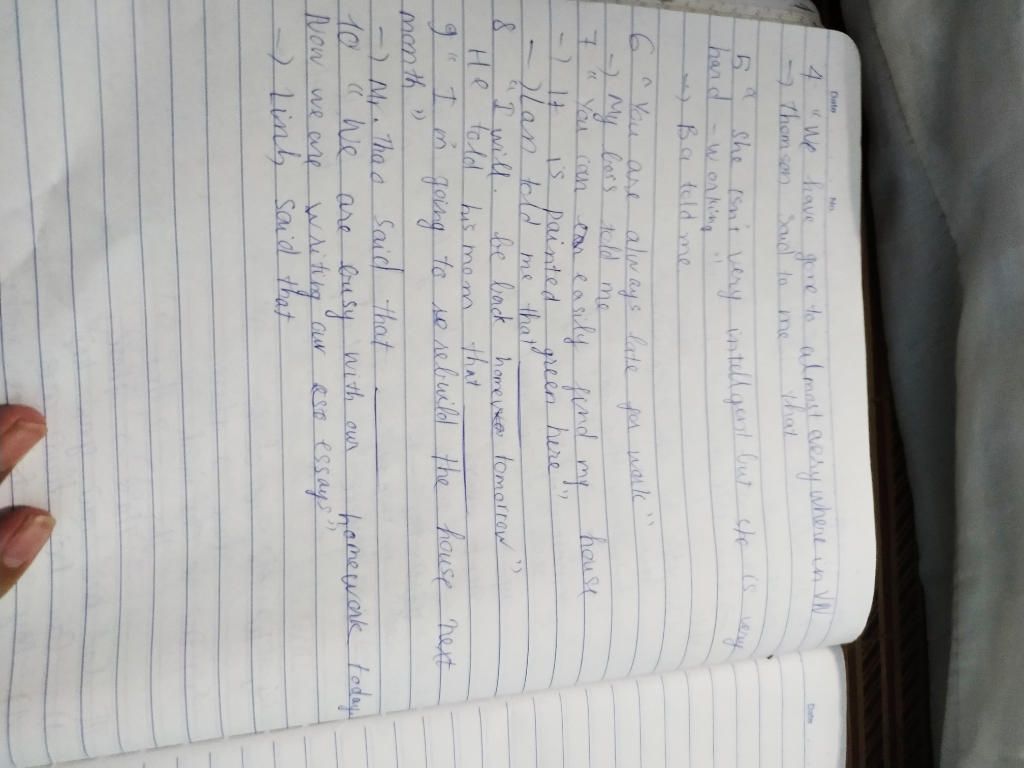 Date No.
4 "We have gone to almost every where in VN
-> Thomson said to me that
5 " She isn't very intelligent but she is very
hard - working "
-> Ba told me
6 " You are always late for work "
-> My boss told me
7 " You can easily find my house
-) It is painted green here "
-> Lan told me that
8 " I will be back home tomorrow "
He told his mom that
9 " I 'm going to rebuild the house next
month "
-> Mr. Thao said that
10 " We are busy with our homework today.
Now we are writing our essays "
-> Linh said that
Date